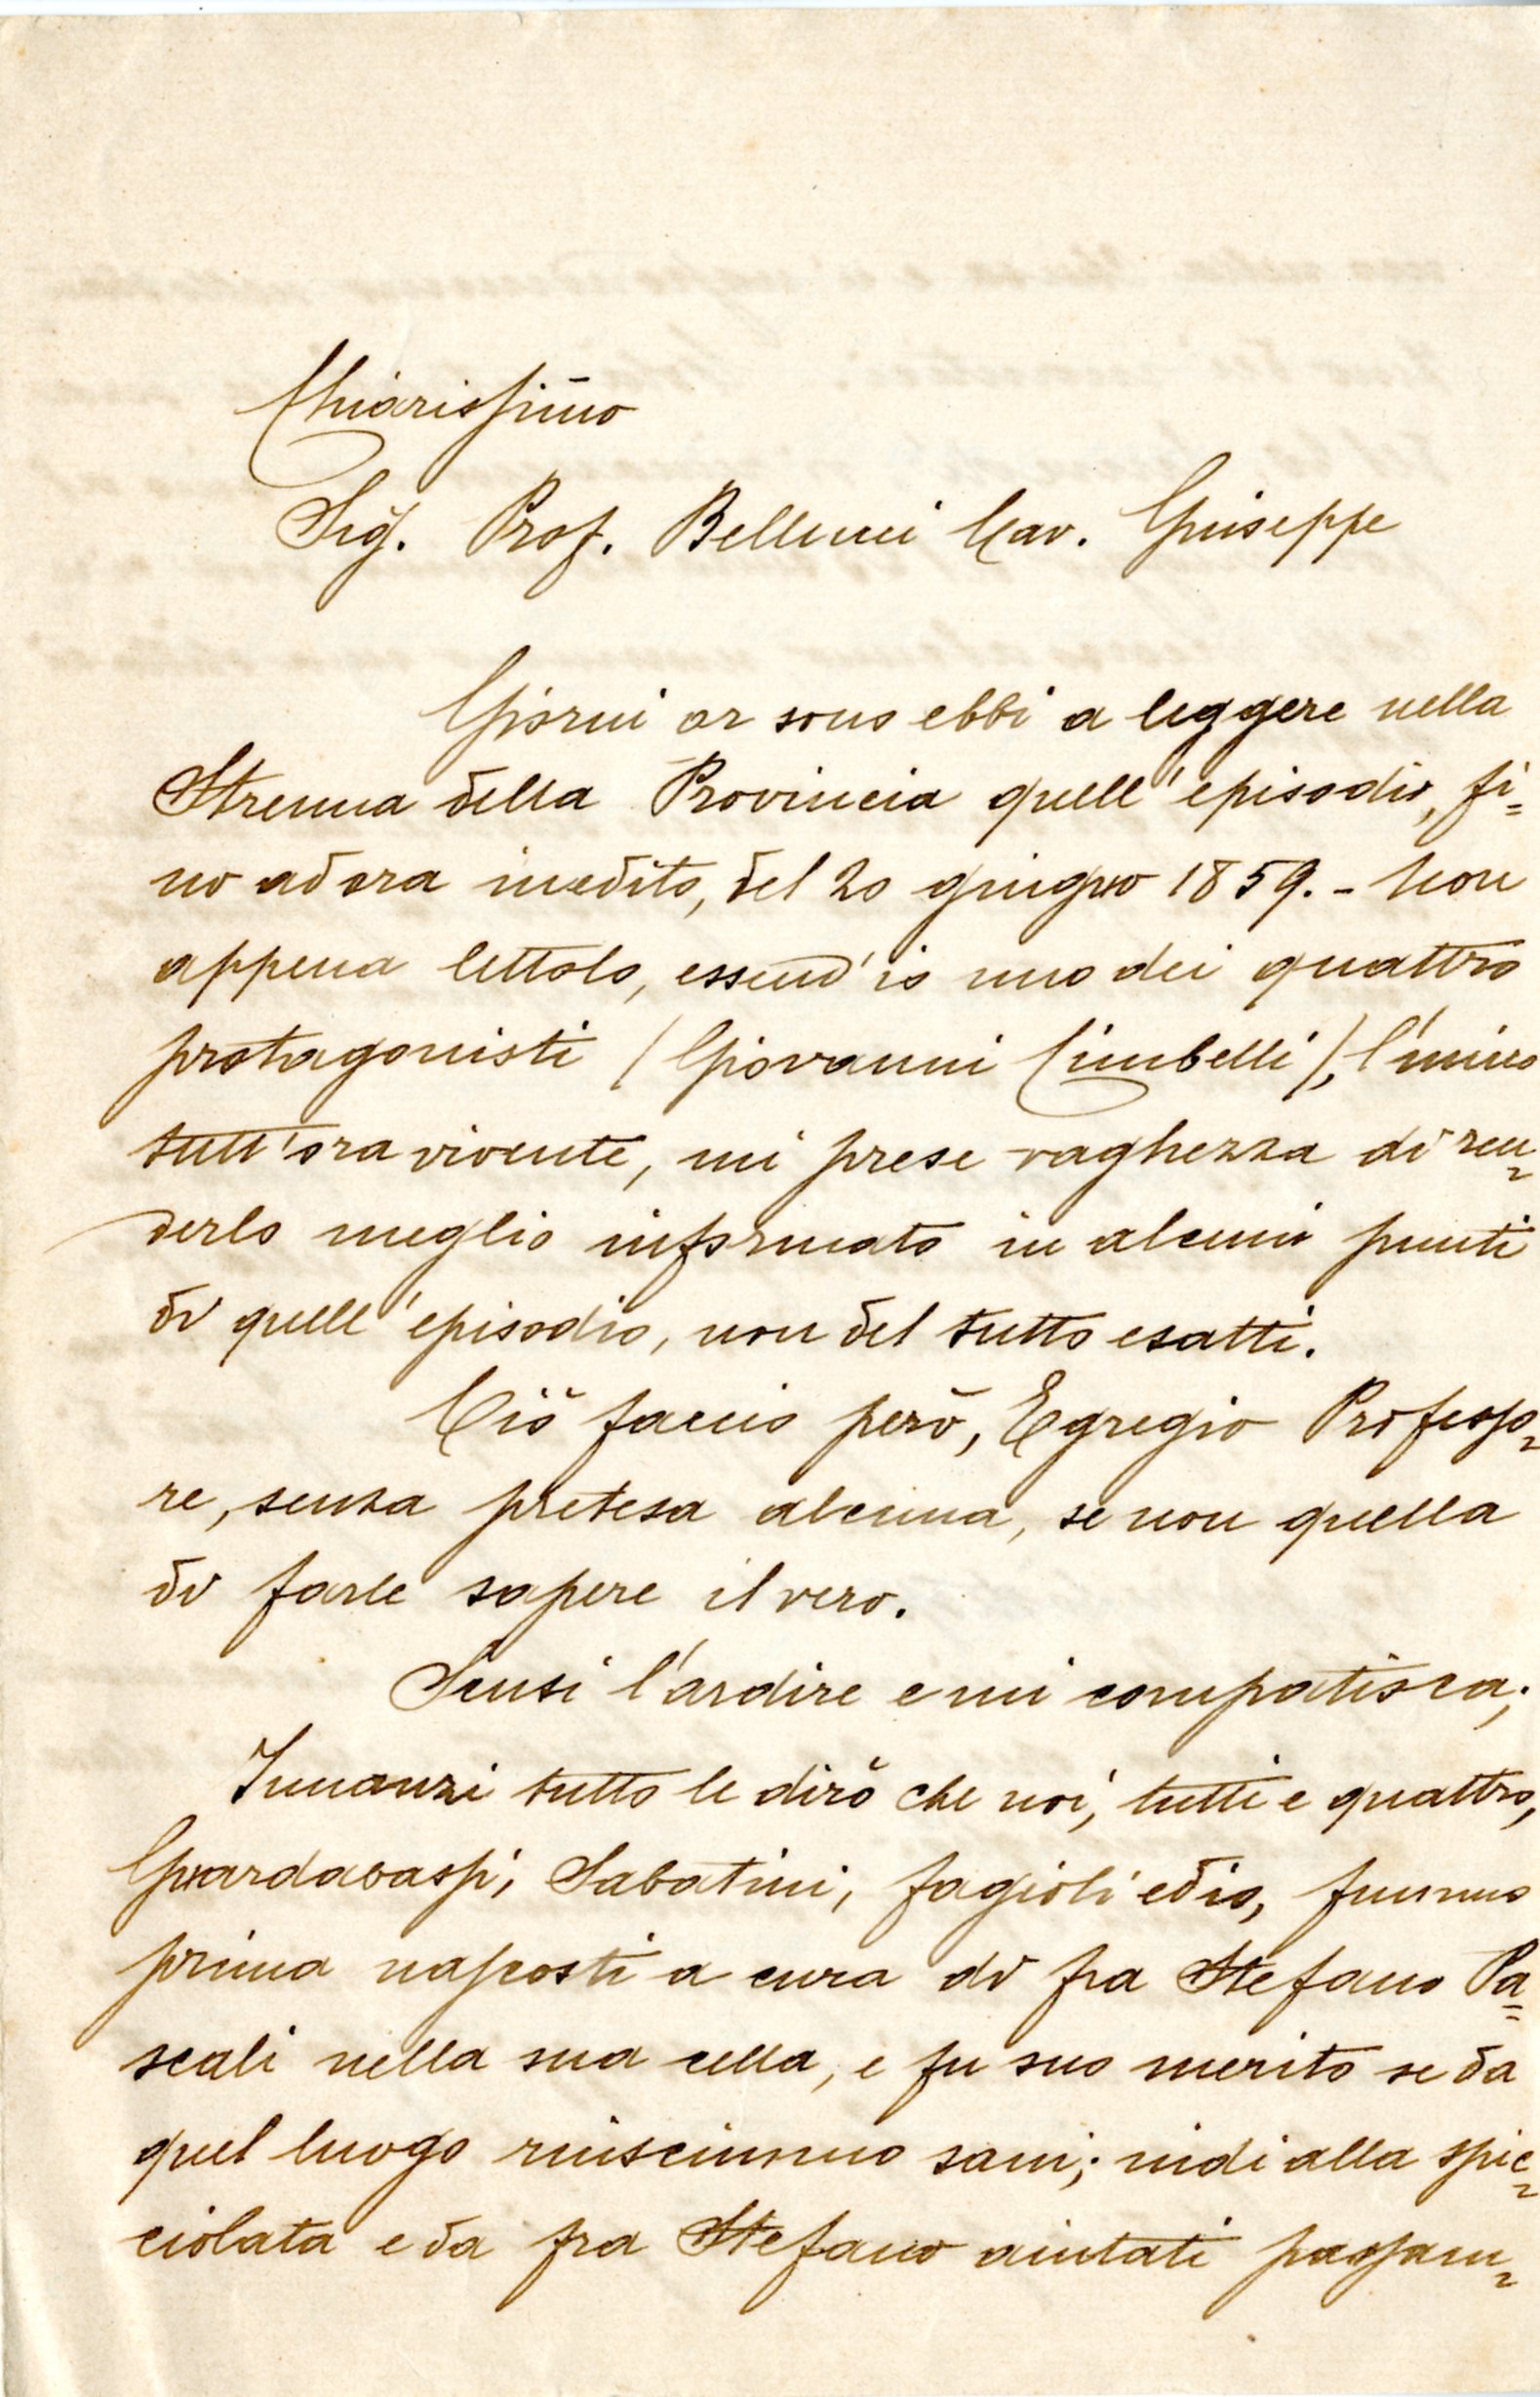 Chiarissimo
Sig. Prof. Bellucci Cav. Giuseppe
Giorni or sono ebbi a leggere nella
Strenna della Provincia quell'episodio, fi=
no ad ora inedito, del 20 giugno 1859. - Non
appena lettolo, essend'io uno dei quattro
protagonisti (Giovanni Cimbelli), l'unico
tutt'ora vivente, mi prese vaghezza di ren=
derlo meglio informato in alcuni punti
di quell'episodio, non del tutto esatti.
Ciò faccio però, Egregio Professo=
re, senza pretesa alcuna, se non quella
di farle sapere il vero.
Scusi l'ardire e mi compatisca;
Innanzi tutto le dirò che noi, tutti e quattro,
Guardabassi, Sabatini, Fagioli ed io, fummo
prima nascosti a cura di fra Stefano Pa=
scali nella sua cella, e fu suo merito se da
quel luogo riuscimmo sani; indi alla spic=
ciolata e da fra Stefano aiutati passam=